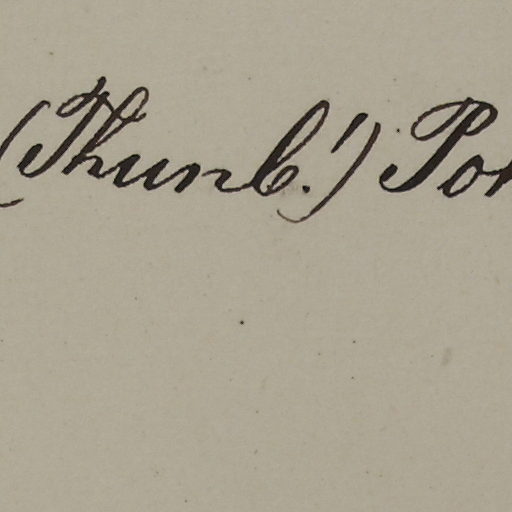 (Thunb.!) Por